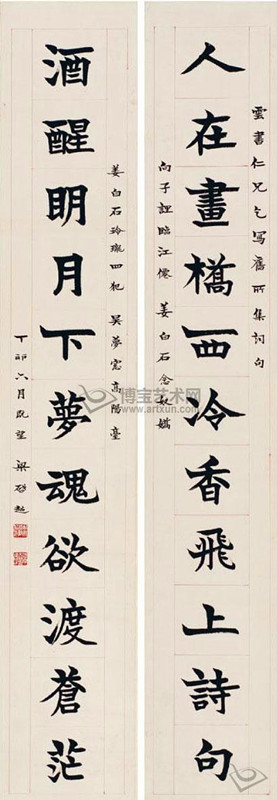 雲書仁兄乞写舊所集詞句
人在畫橋西冷香飛上詩句
向子諲臨江僊 姜白石念奴嬌
姜白石玲瓏四犯 吳夢窓高陽臺
酒醒明月下夢魂欲渡蒼茫
丁卯六月既望 梁啟超
博宝艺术网
www.artxun.com